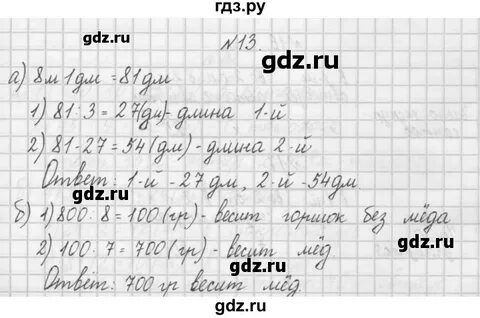 гдз.ру
№13.
а) 8м 1дм = 81дм
1) 81 : 3 = 27(дм) - длина 1-й
2) 81 - 27 = 54 (дм) - длина 2-й
Ответ: 1-й - 27 дм, 2-й - 54дм
б) 1) 800 : 8 = 100 (гр) - весит горшок без мёда
2) 100 · 7 = 700 (гр) - весит мёд
Ответ: 700 гр весит мёд.
gdz.ru
gdz.ru
gdz.ru
gdz.ru
gdz.ru
gdz.ru